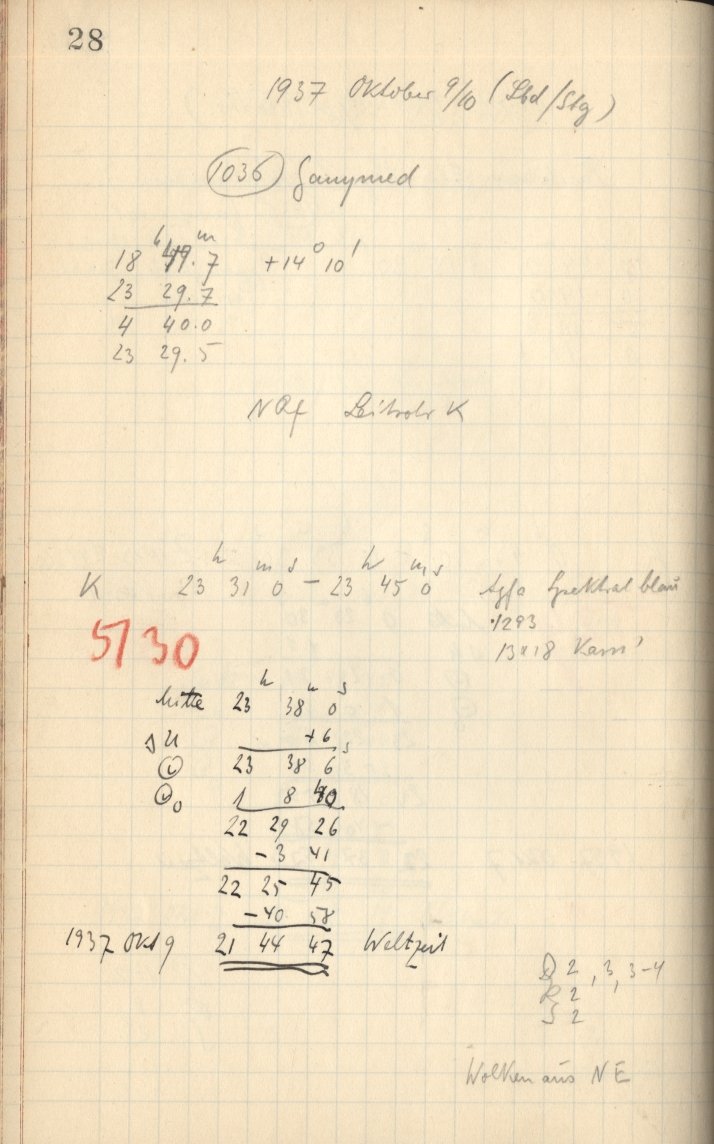 28
1937 Oktober 9/10 (Lbd/Stg)
1036 Ganymed
h m
18 49.7 +14° 10'
23 29.7
4 40.0
23 29.5
N Rf Leitrohr K
K 23h 31m 0s – 23h 45m 0s Agfa Spektral blau
1293
5730 13x18
Mitte 23h 38m 0s
ΔU +6s
23 38 6
1 8 40
22 29 26
-3 41
22 25 45
-40 58
1937 Okt 9 21 44 47 Weltzeit
2, 3, 3-4
R 2
S 2
Wolken aus NE